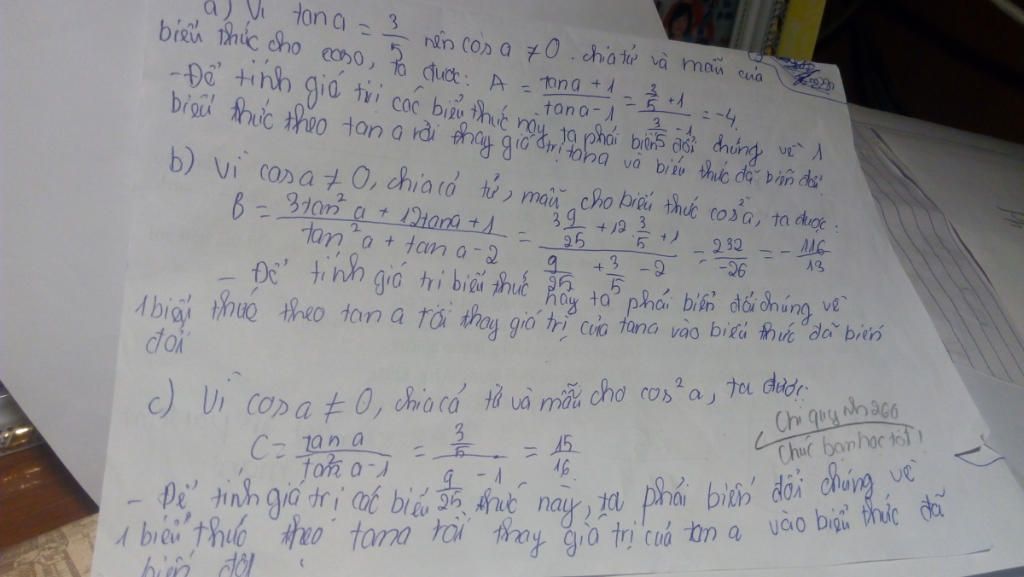 a) Vì tan a = 3/5 nên cos a ≠ 0. chia tử và mẫu của
biểu thức cho cosa, ta được: A = (tana + 1)/(tana - 1) = (3/5 + 1)/(3/5 - 1) = -4.
- Để tính giá trị các biểu thức này, ta phải biến đổi chúng về 1
biểu thức theo tan a rồi thay giá trị tana và biểu thức đã biến đổi.
b) Vì cos a ≠ 0, chia cả tử, mẫu cho biểu thức cos²a, ta được:
B = (3tan²a + 12tana + 1)/(tan²a + tan a - 2) = (3 9/25 + 12 . 3/5 + 1)/(9/25 + 3/5 - 2) = 232/-26 = - 116/13
- Để tính giá trị biểu thức này ta phải biến đổi chúng về
1 biểu thức theo tan a rồi thay giá trị của tana vào biểu thức đã biến
đổi
c) Vì cos a ≠ 0, chia cả tử và mẫu cho cos²a, ta được:
C = tan a/(tan²a - 1) = (3/5)/(9/25 - 1) = 15/16
Chi quynh260
Chúc bạn học tốt!
- Để tính giá trị các biểu thức này, ta phải biến đổi chúng về
1 biểu thức theo tana rồi thay giá trị của tan a vào biểu thức đã
biến đổi.